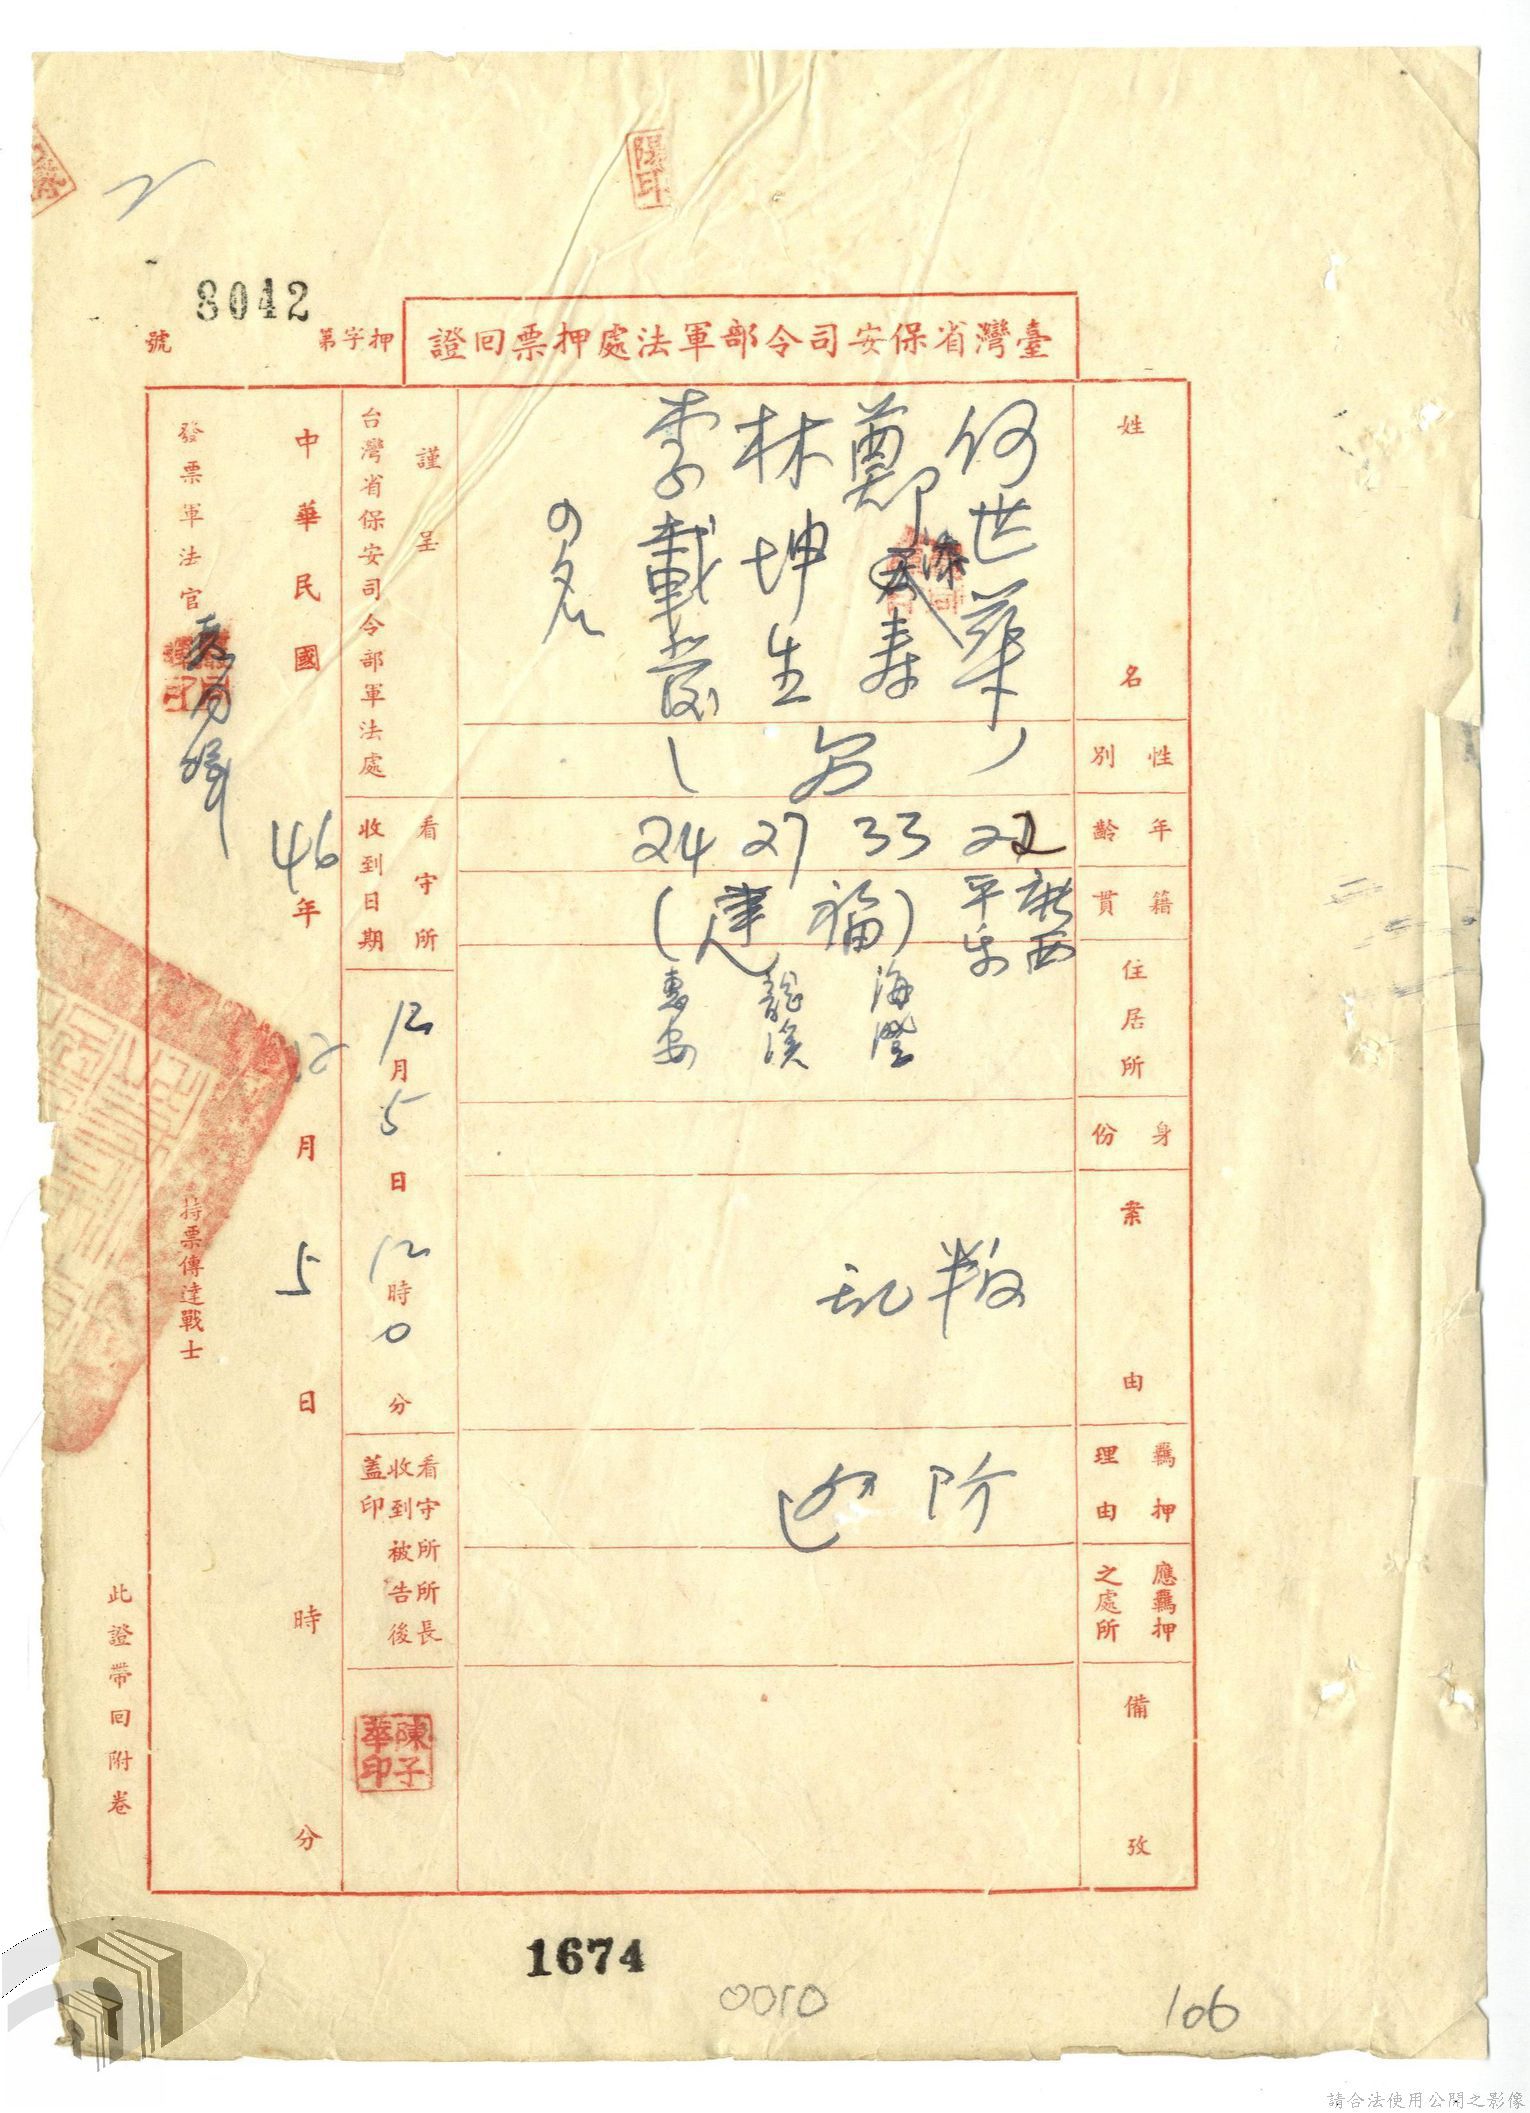 陽印
8042
押字第 號
臺灣省保安司令部軍法處押票回證
姓名
何世華
鄭添寿
林坤生
李載発
の名
性別
男
年齡
22
33
27
24
籍貫
廣西
平乐
福建
海澄
龍溪
惠安
住居所
身份
案由
叛乱
羈押理由
防逃
應羈押之處所
備攷
謹呈
台灣省保安司令部軍法處
看守所
收到日期
12月5日12時0分
看守所所長
收到被告後
蓋印
陳子華印
中華民國46年12月5日 時 分
發票軍法官
持票傳達戰士
此證帶回附卷
1674
0010
106
請合法使用公開之影像